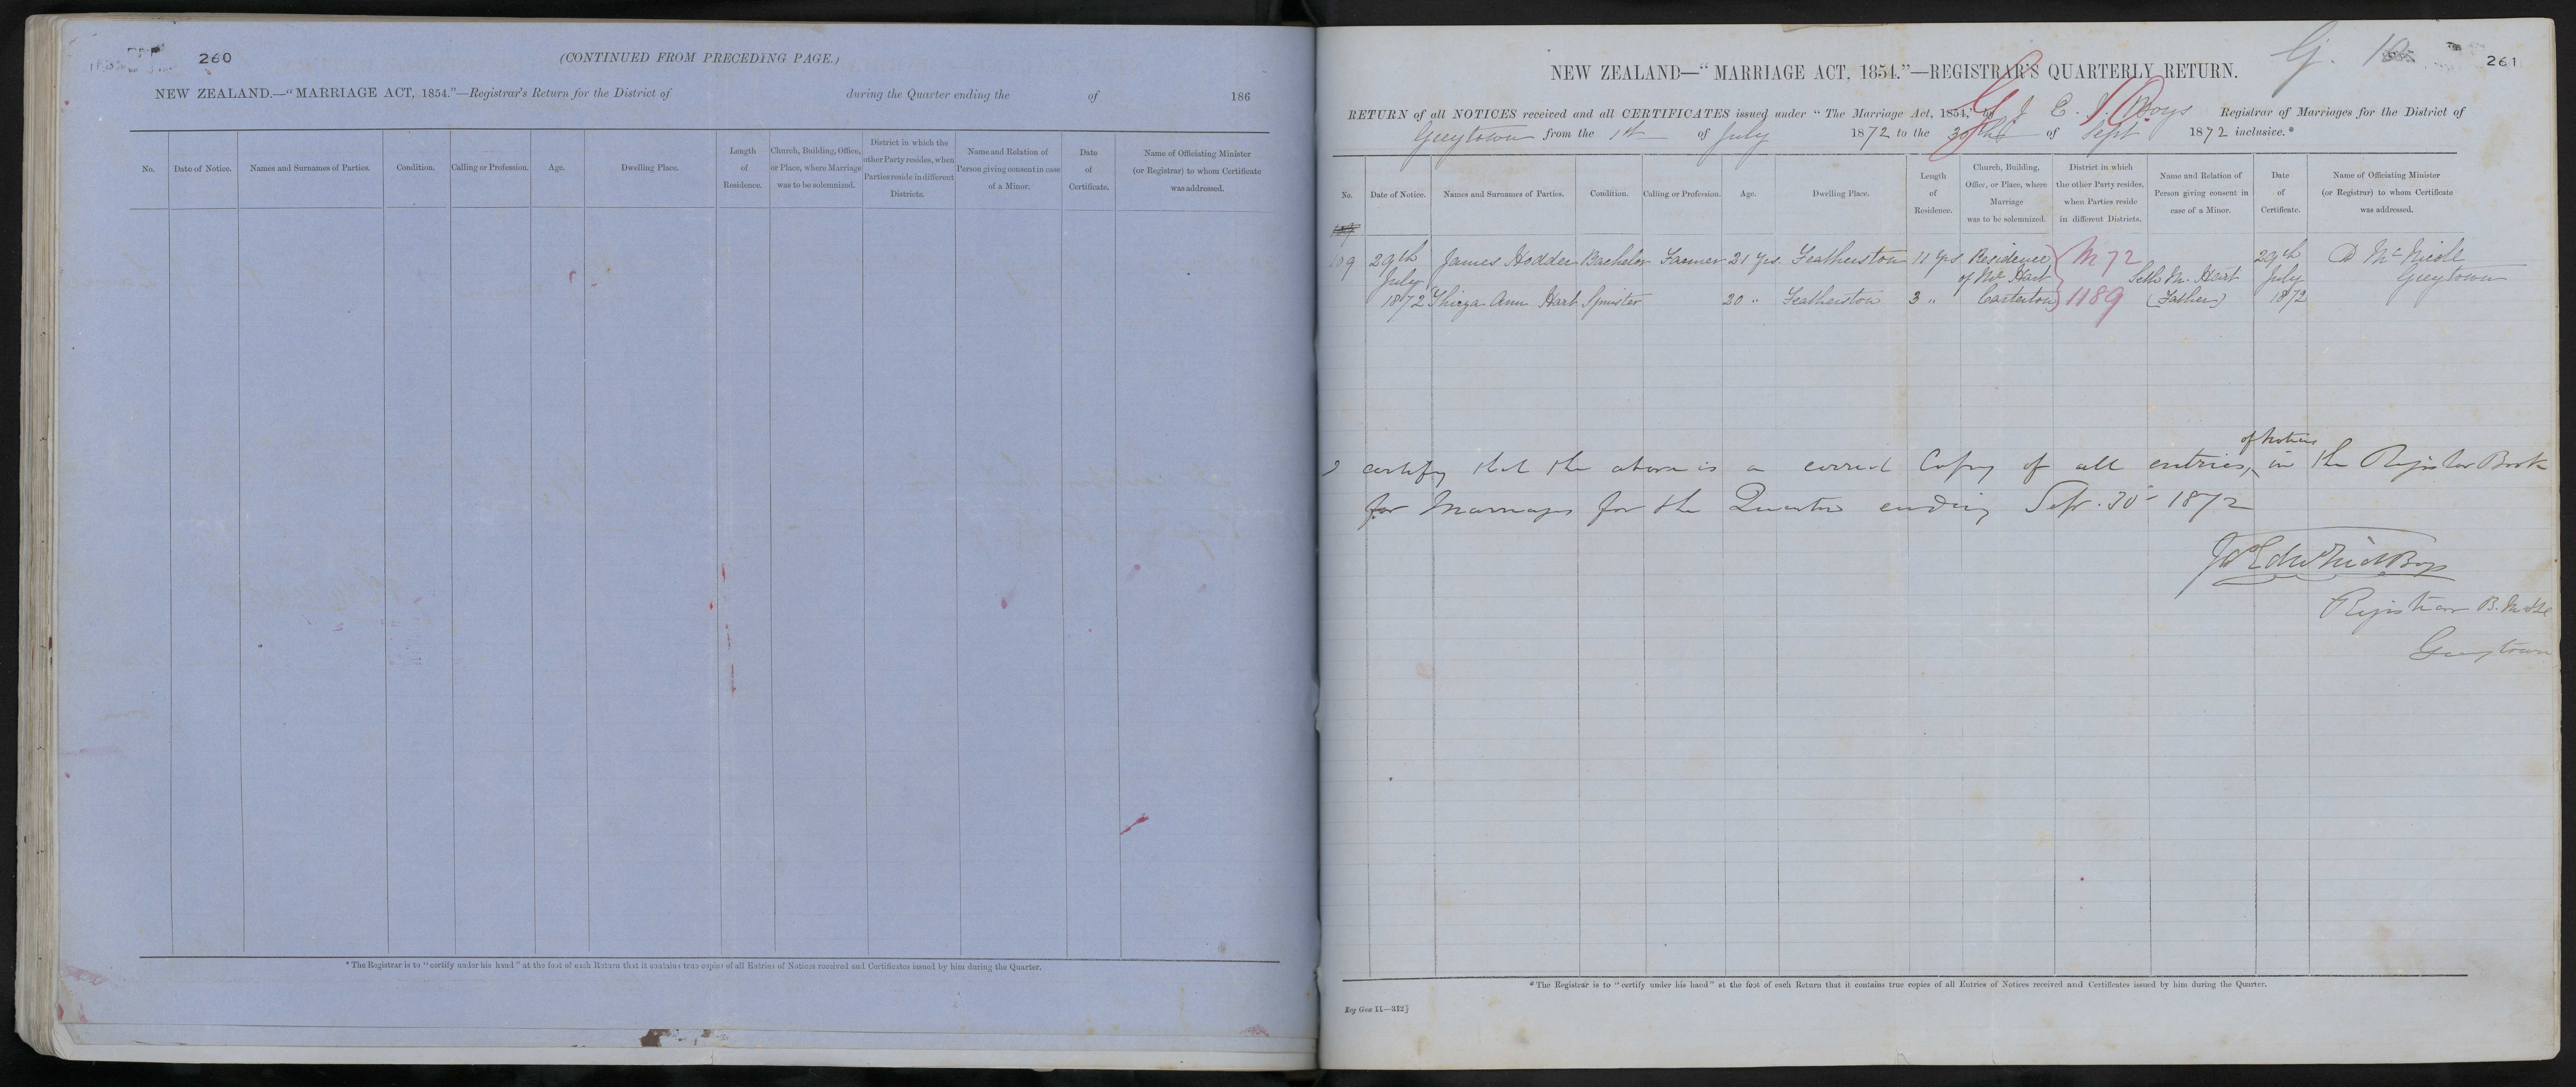 260
(CONTINUED FROM PRECEDING PAGE.)
NEW ZEALAND.—"MARRIAGE ACT, 1854."—Registrar's Return for the District of during the Quarter ending the of 186
No.
Date of Notice.
Names and Surnames of Parties.
Condition.
Calling or Profession.
Age.
Dwelling Place.
Length
of
Residence.
Church, Building, Office,
or Place, where Marriage
was to be solemnized.
District in which the
other Party resides, when
Parties reside in different
Districts.
Name and Relation of
Person giving consent in case
of a Minor.
Date
of
Certificate.
Name of Officiating Minister
(or Registrar) to whom Certificate
was addressed.
*The Registrar is to "certify under his hand" at the foot of each Return that it contains true copies of all Entries of Notices received and Certificates issued by him during the Quarter.
261
NEW ZEALAND—"MARRIAGE ACT, 1854."—REGISTRAR'S QUARTERLY RETURN.
RETURN of all NOTICES received and all CERTIFICATES issued under "The Marriage Act, 1854," by J E. J. Boys Registrar of Marriages for the District of
Greytown from the 1st of July 1872 to the 30th of Sept 1872 inclusive.*
No.
Date of Notice.
Names and Surnames of Parties.
Condition.
Calling or Profession.
Age.
Dwelling Place.
Length
of
Residence.
Church, Building,
Office, or Place, where
Marriage
was to be solemnized.
District in which
the other Party resides,
when Parties reside
in different Districts.
Name and Relation of
Person giving consent in
case of a Minor.
Date
of
Certificate.
Name of Officiating Minister
(or Registrar) to whom Certificate
was addressed.
109 29th James Hodder Bachelor Farmer 21 yrs. Featherston 11 yrs Residence M 72 29th D McNicol
July of Mr Hart Seth M. Hart July Greytown
1872 Thirza Ann Hart Spinster 20 " Featherston 3 " Carterton 1189 (Father) 1872
of Notices
I certify that the above is a correct Copy of all entries, in the Register Book
for Marriages for the Quarter ending Sept. 30 1872
Registrar B. M &c
Greytown
*The Registrar is to "certify under his hand" at the foot of each Return that it contains true copies of all Entries of Notices received and Certificates issued by him during the Quarter.
Reg Gen 11—312]